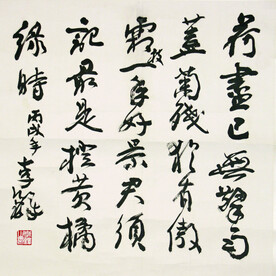 荷盡已無擎雨
蓋菊殘猶有傲
霜枝一年好景君須
記最是橙黃橘
綠時
丙戌年 李